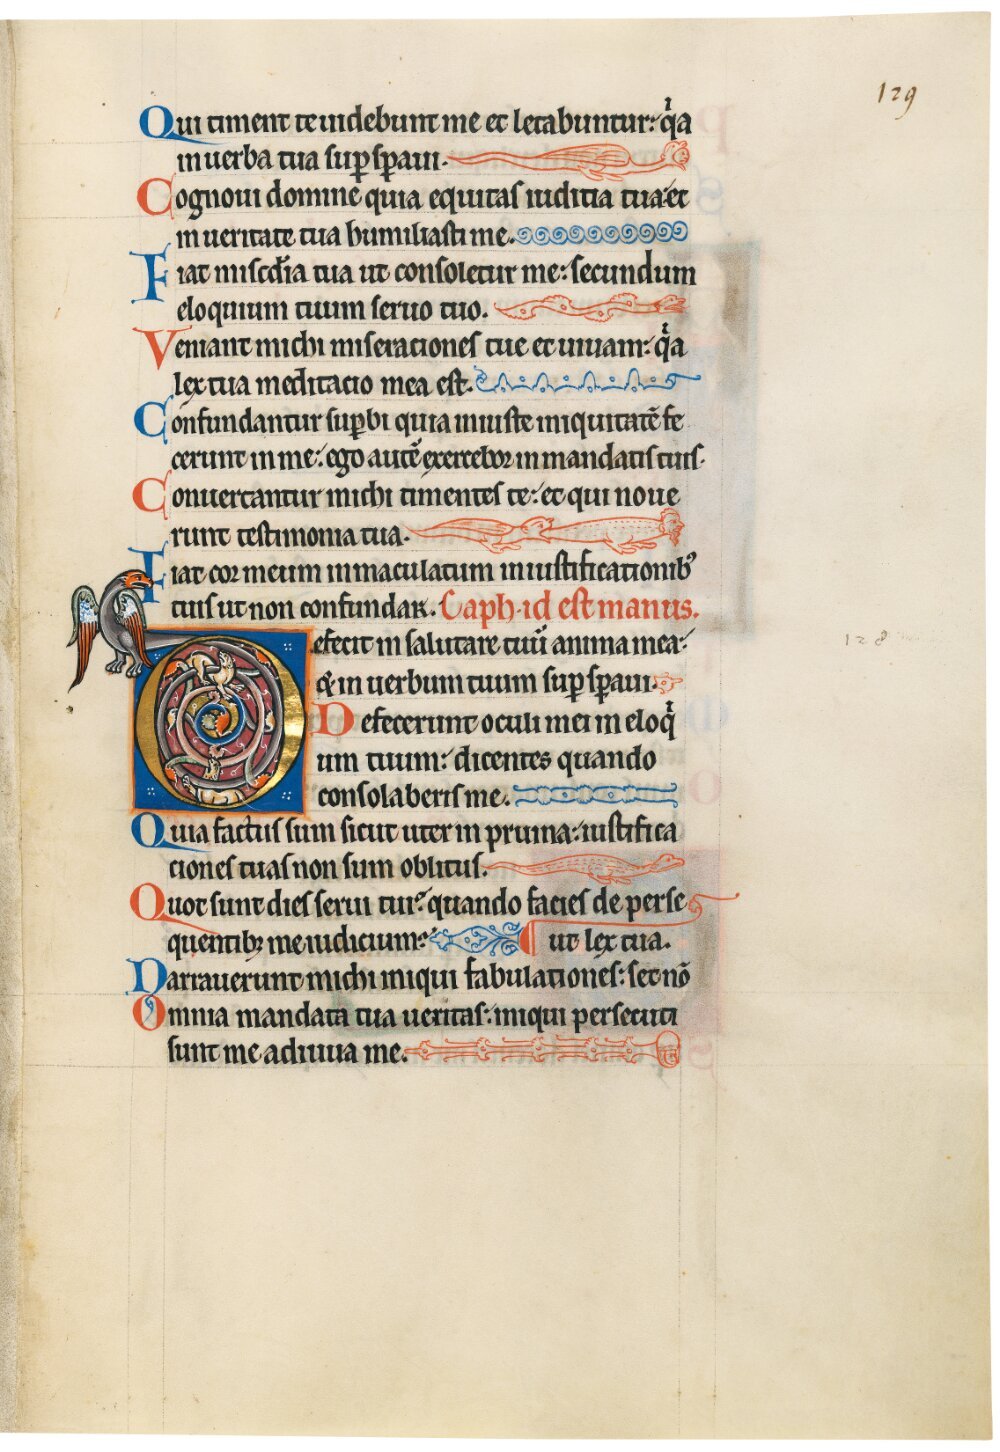 129
Qui timent te uidebunt me et letabuntur: q̇a
in uerba tua sup̱sp̱aui.
Cognoui domine quia equitas iuditia tua: et
in ueritate tua humiliasti me.
Fiat misc̄dia tua ut consoletur me: secundum
eloquium tuum seruo tuo.
Veniant michi miserationes tue et uiuam: q̇a
lex tua meditacio mea est.
Confundantur sup̱bi quia iniuste iniquitatē fe
cerunt in me: ego autē exercebor in mandatis tuis.
Conuertantur michi timentes te: et qui noue
runt testimonia tua.
Fiat cor meum inmaculatum in iustificationib᷒
tuis ut non confundar. Caph· id est manus.
Defecit in salutare tuū anima mea:
& in uerbum tuum sup̱sp̱aui.
Defecerunt oculi mei in eloq̇
um tuum: dicentes quando
consolaberis me.
128
Quia factus sum sicut uter in pruina: iustifica
ciones tuas non sum oblitus.
Quot sunt dies serui tui? quando facies de perse
quentibꝫ me iudicium? ut lex tua.
Narrauerunt michi iniqui fabulationes: set nō
Omnia mandata tua ueritas: iniqui persecuti
sunt me adiuua me.